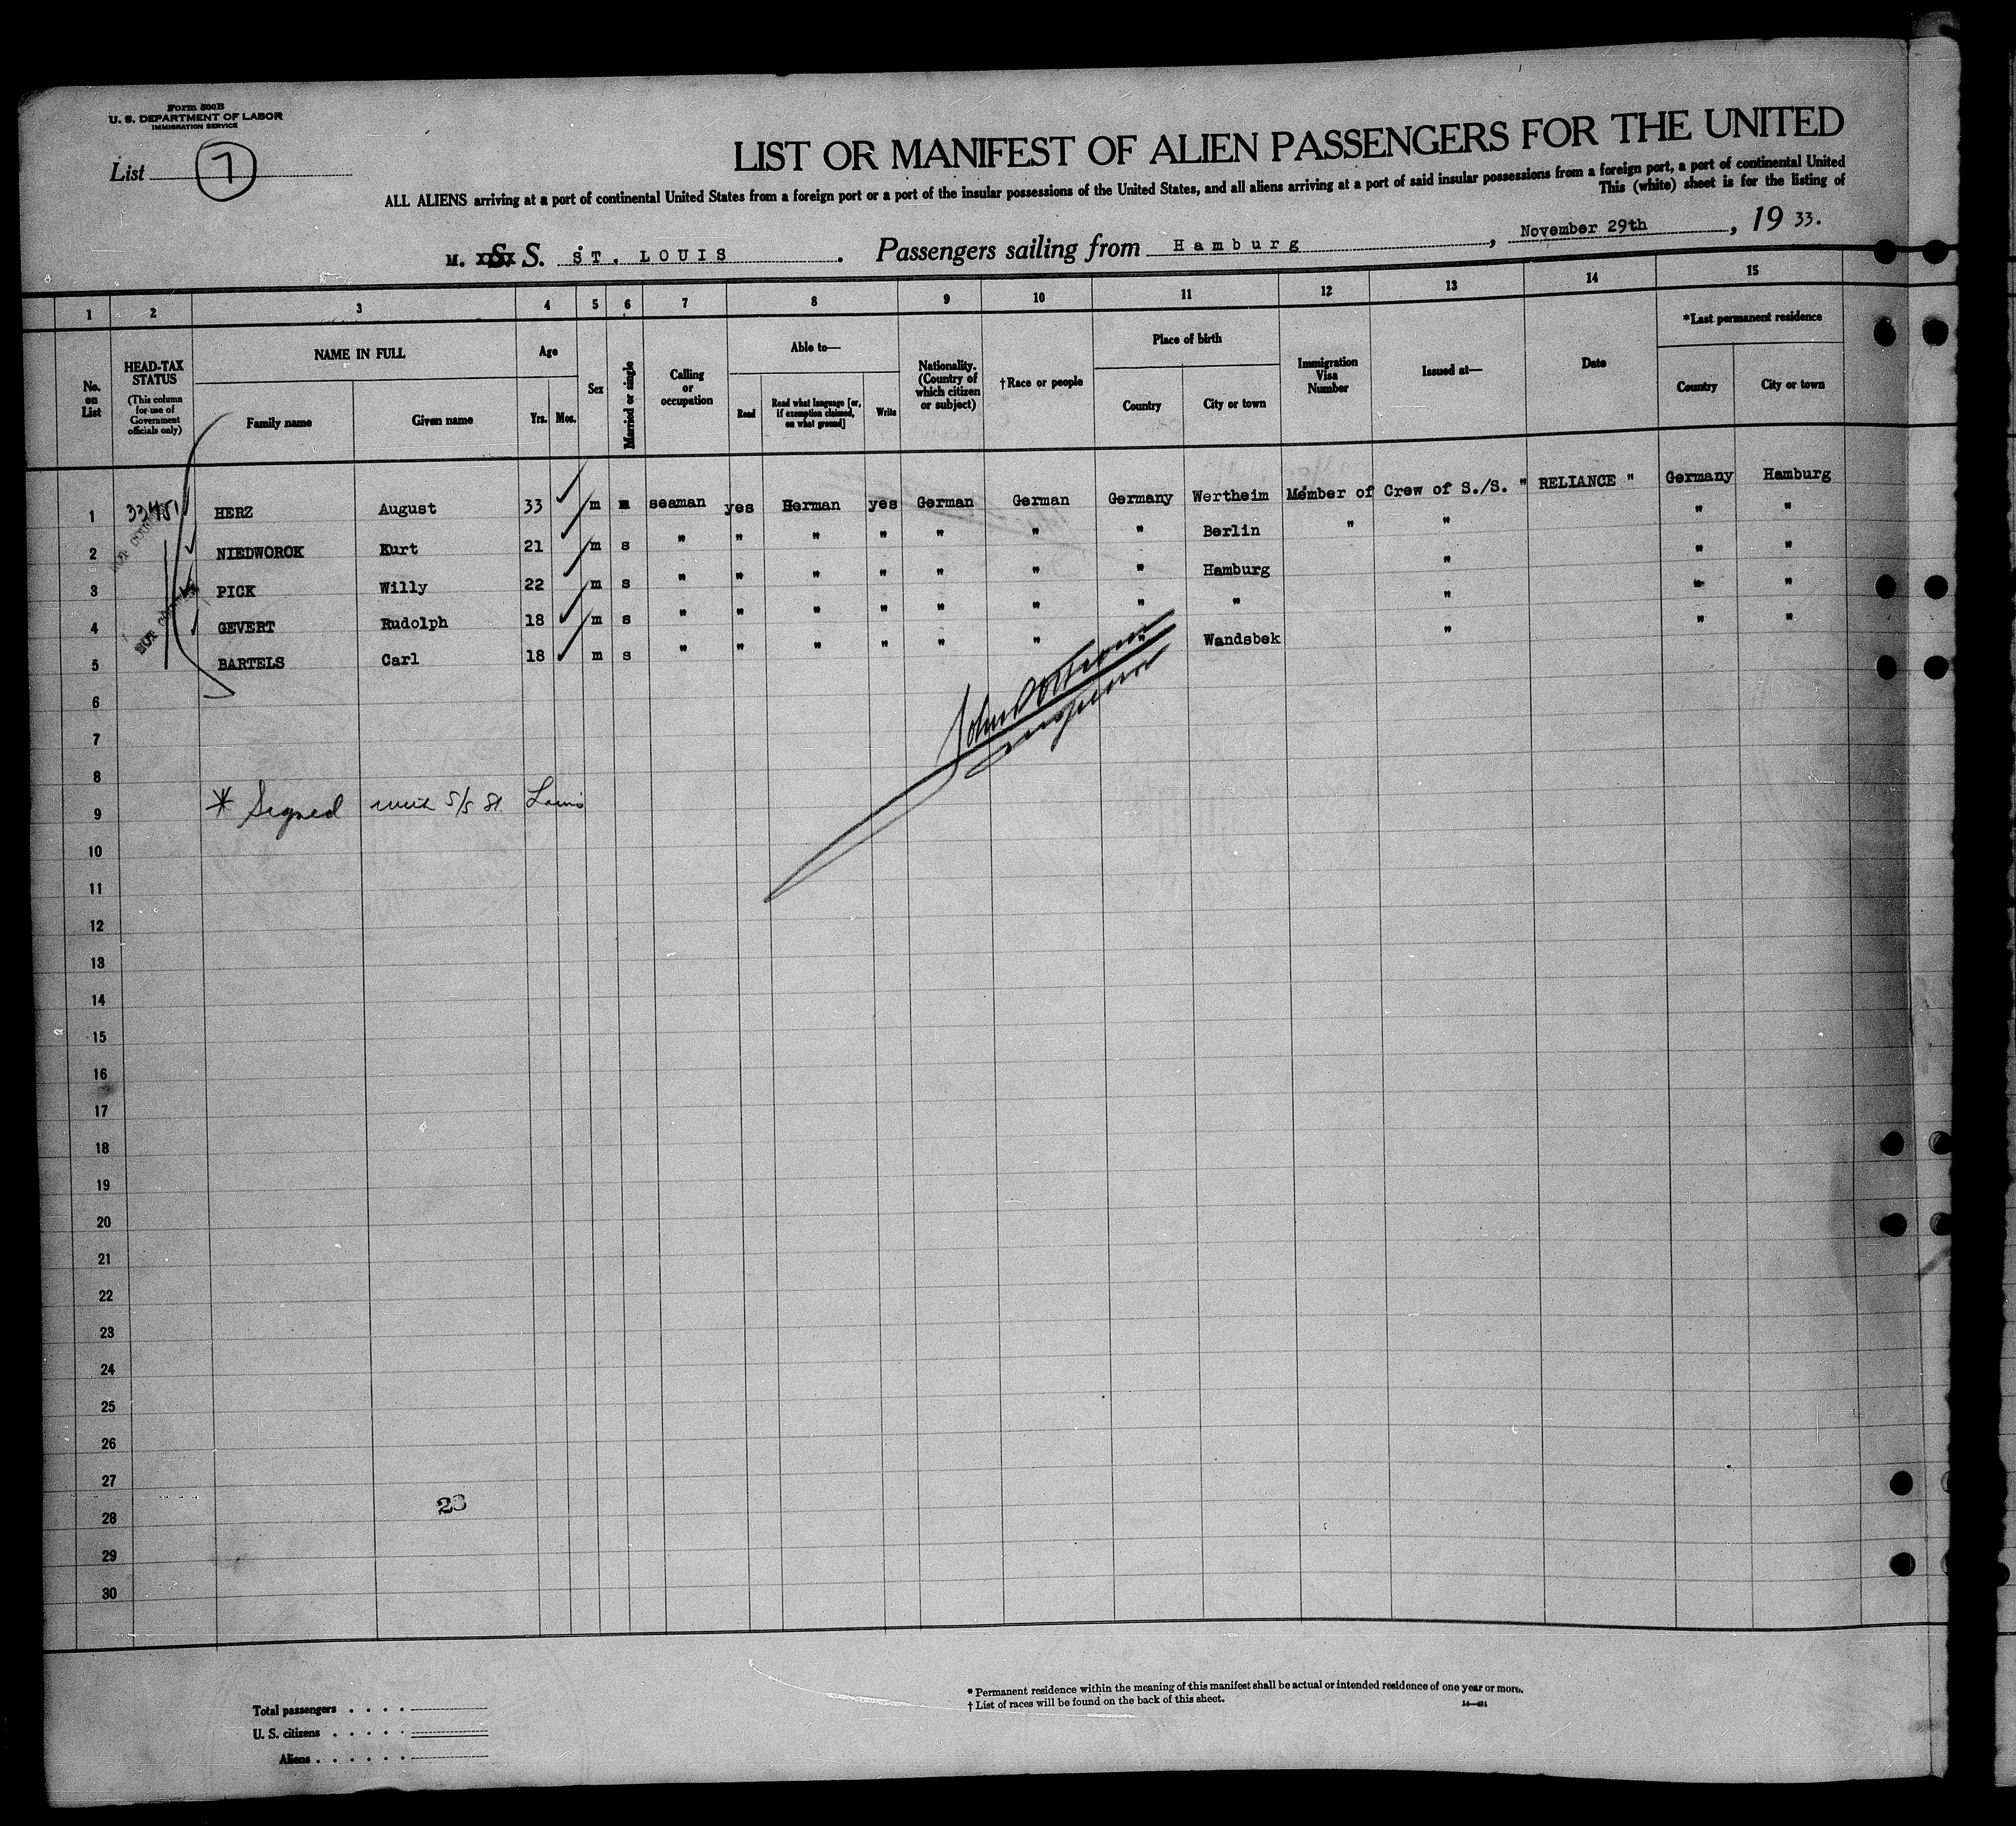 Form 500B
U. S. DEPARTMENT OF LABOR
IMMIGRATION SERVICE
List 7
LIST OR MANIFEST OF ALIEN PASSENGERS FOR THE UNITED
ALL ALIENS arriving at a port of continental United States from a foreign port or a port of the insular possessions of the United States, and all aliens arriving at a port of said insular possessions from a foreign port, a port of continental United
This (white) sheet is for the listing of
M. S. S. ST. LOUIS . Passengers sailing from Hamburg , November 29th , 19 33.
1 2 3 4 5 6 7 8 9 10 11 12 13 14 15
No. on List
HEAD-TAX STATUS (This column for use of Government officials only)
NAME IN FULL
Family name Given name
Age
Yrs. Mos.
Sex
Married or single
Calling or occupation
Able to—
Read Read what language [or, if exemption claimed, on what ground] Write
Nationality. (Country of which citizen or subject)
†Race or people
Place of birth
Country City or town
Immigration Visa Number
Issued at—
Date
*Last permanent residence
Country City or town
1 33451 HERZ August 33 m m seaman yes Herman yes German German Germany Wertheim Member of Crew of S./S. " RELIANCE " Germany Hamburg
2 NIEDWOROK Kurt 21 m s " " " " " " " Berlin " " " "
3 PICK Willy 22 m s " " " " " " " Hamburg " " "
4 GEVERT Rudolph 18 m s " " " " " " " " " " "
5 BARTELS Carl 18 m s " " " " " " " Wandsbek " " "
6
7
8
9 * Signed with S/S St. Louis
Inspector
10
11
12
13
14
15
16
17
18
19
20
21
22
23
24
25
26
27
23
28
29
30
* Permanent residence within the meaning of this manifest shall be actual or intended residence of one year or more.
† List of races will be found on the back of this sheet.
14—431
Total passengers . . . .
U. S. citizens . . . . .
Aliens . . . . . .